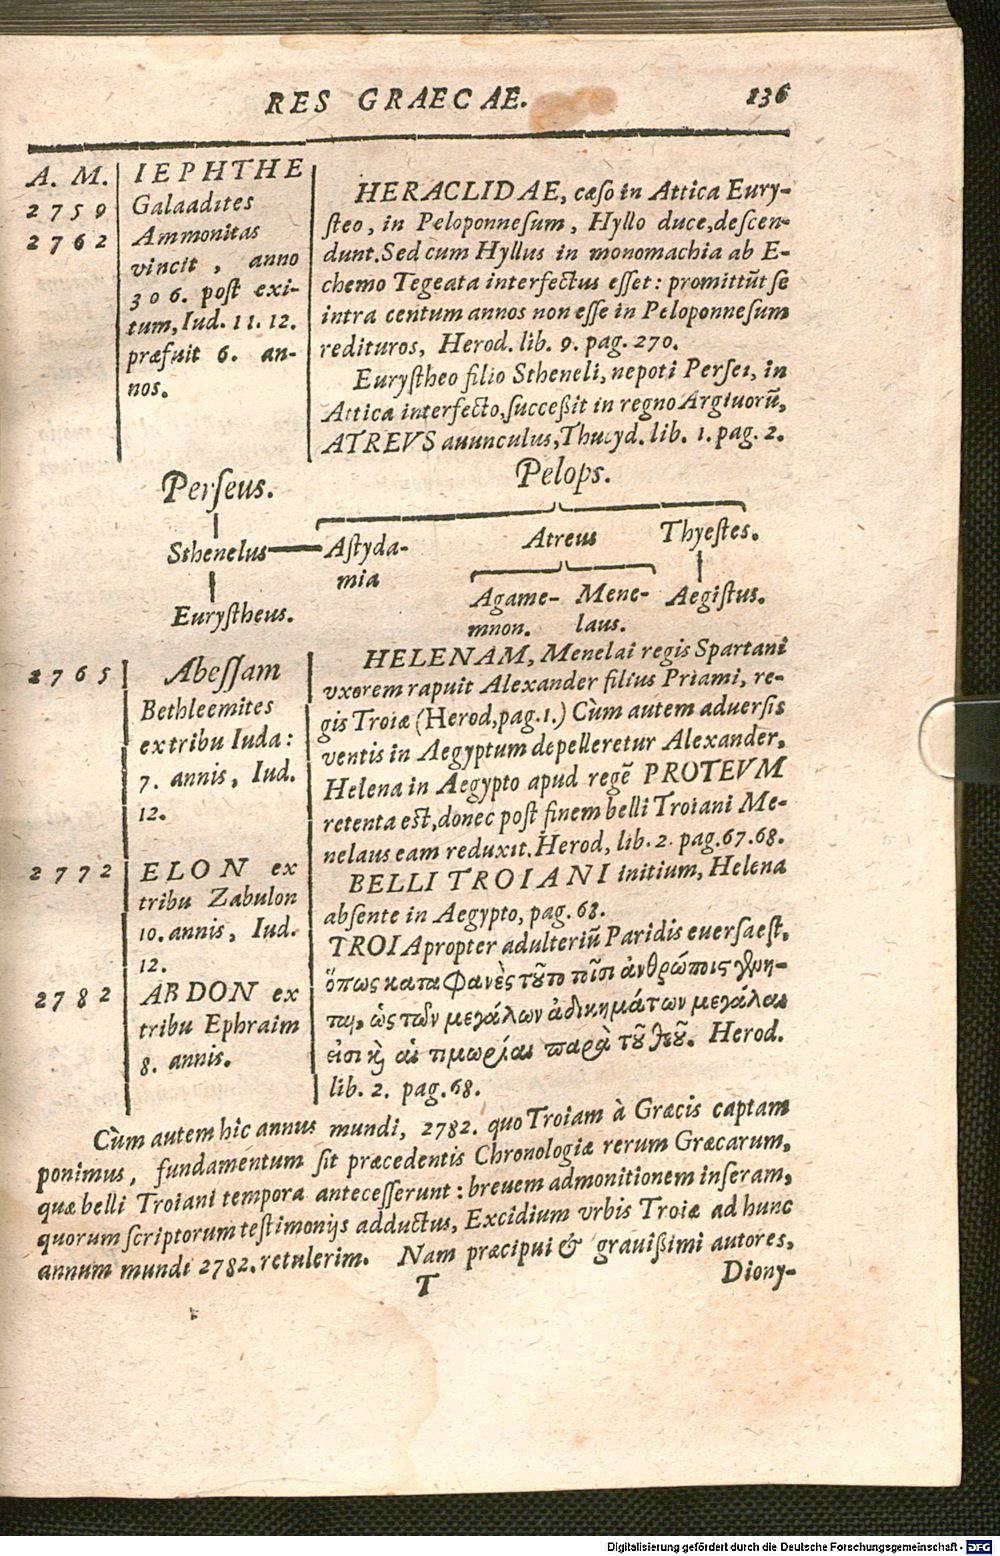 RES GRAECAE. 136
A. M.
2759
2762
IEPHTHE
Galaadites
Ammonitas
vincit, anno
306. post exi-
tum, Iud. 11. 12.
præfuit 6. an-
nos.
HERACLIDAE, cæso in Attica Eury-
steo, in Peloponnesum, Hyllo duce, descen-
dunt. Sed cum Hyllus in monomachia ab E-
chemo Tegeata interfectus esset: promittũt se
intra centum annos non esse in Peloponnesum
redituros, Herod. lib. 9. pag. 270.
Eurystheo filio Stheneli, nepoti Persei, in
Attica interfecto, successit in regno Argivorũ,
ATREVS auunculus, Thucyd. lib. 1. pag. 2.
Perseus. Pelops.
Sthenelus Astyda- Atreus Thyestes.
mia
Eurystheus. Agame- Mene- Aegistus.
mnon. laus.
2765
Abessam
Bethleemites
ex tribu Iuda:
7. annis, Iud.
12.
2772
ELON ex
tribu Zabulon
10. annis, Iud.
12.
2782
ABDON ex
tribu Ephraim
8. annis.
HELENAM, Menelai regis Spartani
vxorem rapuit Alexander filius Priami, re-
gis Troiæ (Herod, pag. 1.) Cùm autem aduersis
ventis in Aegyptum depelleretur Alexander,
Helena in Aegypto apud regẽ PROTEVM
retenta est, donec post finem belli Troiani Me-
nelaus eam reduxit. Herod, lib. 2. pag. 67. 68.
BELLI TROIANI initium, Helena
absente in Aegypto, pag. 68.
TROIA propter adulteriũ Paridis euersa est,
ὅπως καταφανὲς τοῦτο ποῖσι ἀνθρώποις γένη-
ται, ὡς τῶν μεγάλων ἀδικημάτων μεγάλαι
εἰσι καὶ αἱ τιμωρίαι παρὰ τοῦ θεοῦ. Herod.
lib. 2. pag. 68.
Cùm autem hic annus mundi, 2782. quo Troiam à Græcis captam
ponimus, fundamentum sit præcedentis Chronologiæ rerum Græcarum,
quæ belli Troiani tempora antecesserunt: breuem admonitionem inseram,
quorum scriptorum testimonijs adductus, Excidium vrbis Troiæ ad hunc
annum mundi 2782. retulerim. Nam præcipui & grauissimi autores,
T Diony-
Digitalisierung gefördert durch die Deutsche Forschungsgemeinschaft - DFG